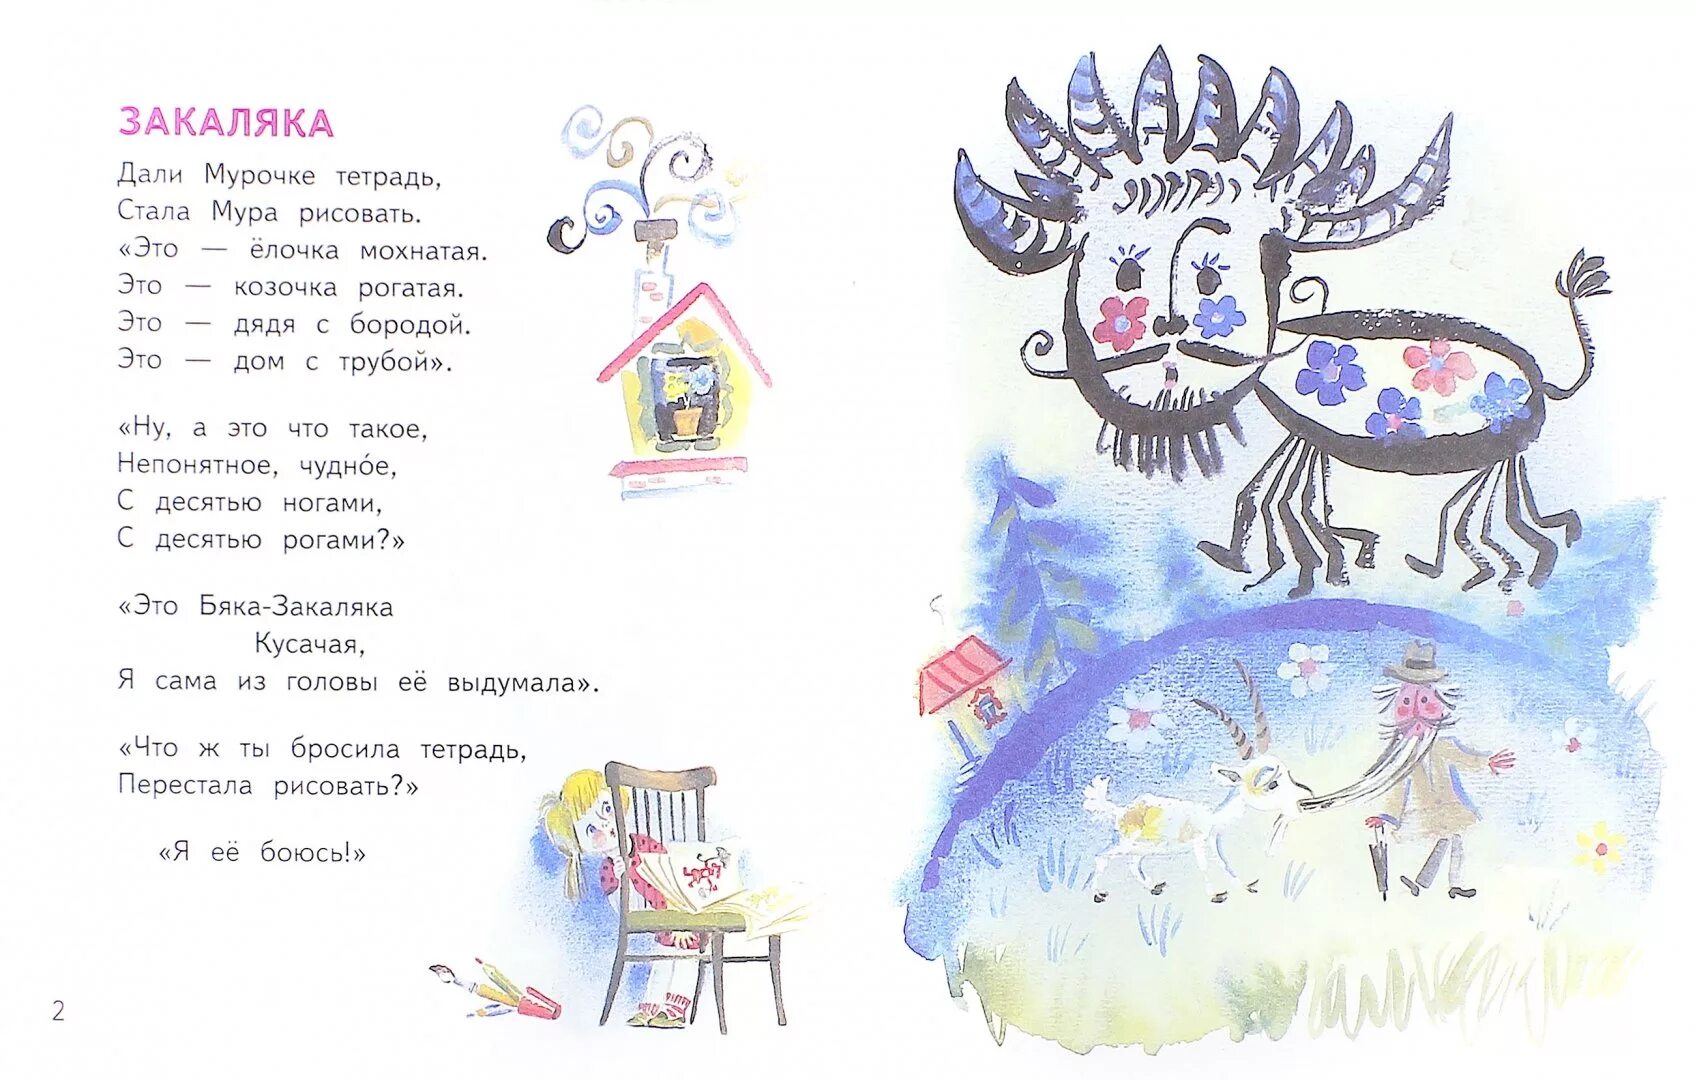 ЗАКАЛЯКА
Дали Мурочке тетрадь,
Стала Мура рисовать.
«Это — ёлочка мохнатая.
Это — козочка рогатая.
Это — дядя с бородой.
Это — дом с трубой».
«Ну, а это что такое,
Непонятное, чудно́е,
С десятью ногами,
С десятью рогами?»
«Это Бяка-Закаляка
Кусачая,
Я сама из головы её выдумала».
«Что ж ты бросила тетрадь,
Перестала рисовать?»
«Я её боюсь!»
2